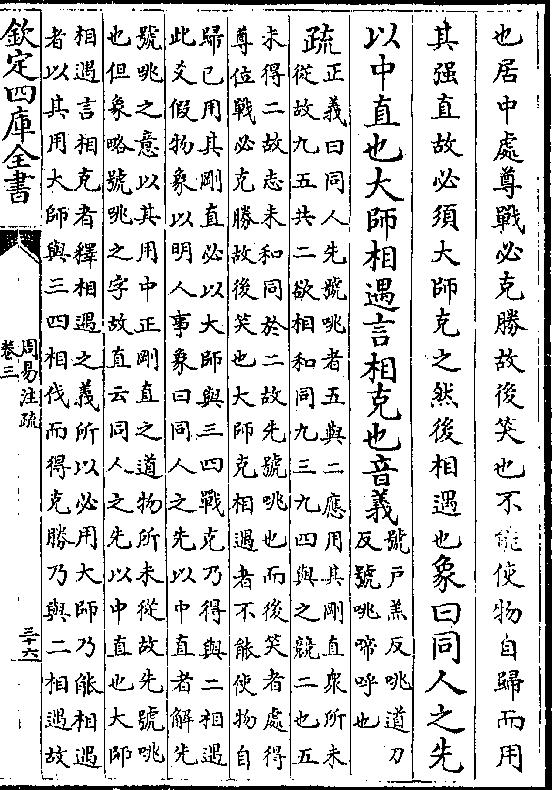 也居中處尊戰必克勝故後笑也不能使物自歸而用
其强直故必須大師克之然後相遇也象曰同人之先
以中直也大師相遇言相克也音義
號户羔反咷道刀
反號咷啼呼也
疏
正義曰同人先號咷者五與二應用其剛直衆所未
從故九五共二欲相和同九三九四與之競二也五
未得二故志未和同於二故先號咷也而後笑者處得
尊位戰必克勝故後笑也大師克相遇者不能使物自
歸已用其剛直必以大師與三四戰克乃得與二相遇
此爻假物象以明人事象曰同人之先以中直者解先
號咷之意以其用中正剛直之道物所未從故先號咷
也但象略號咷之字故直云同人之先以中直也大師
相遇言相克者釋相遇之義所以必用大師乃能相遇
者以其用大師與三四相伐而得克勝乃與二相遇故
欽定四庫全書
周易注疏
卷三
三十六